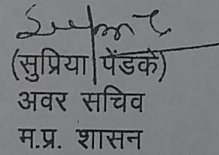 (सुप्रिया पेंडके)
अवर सचिव
म.प्र. शासन